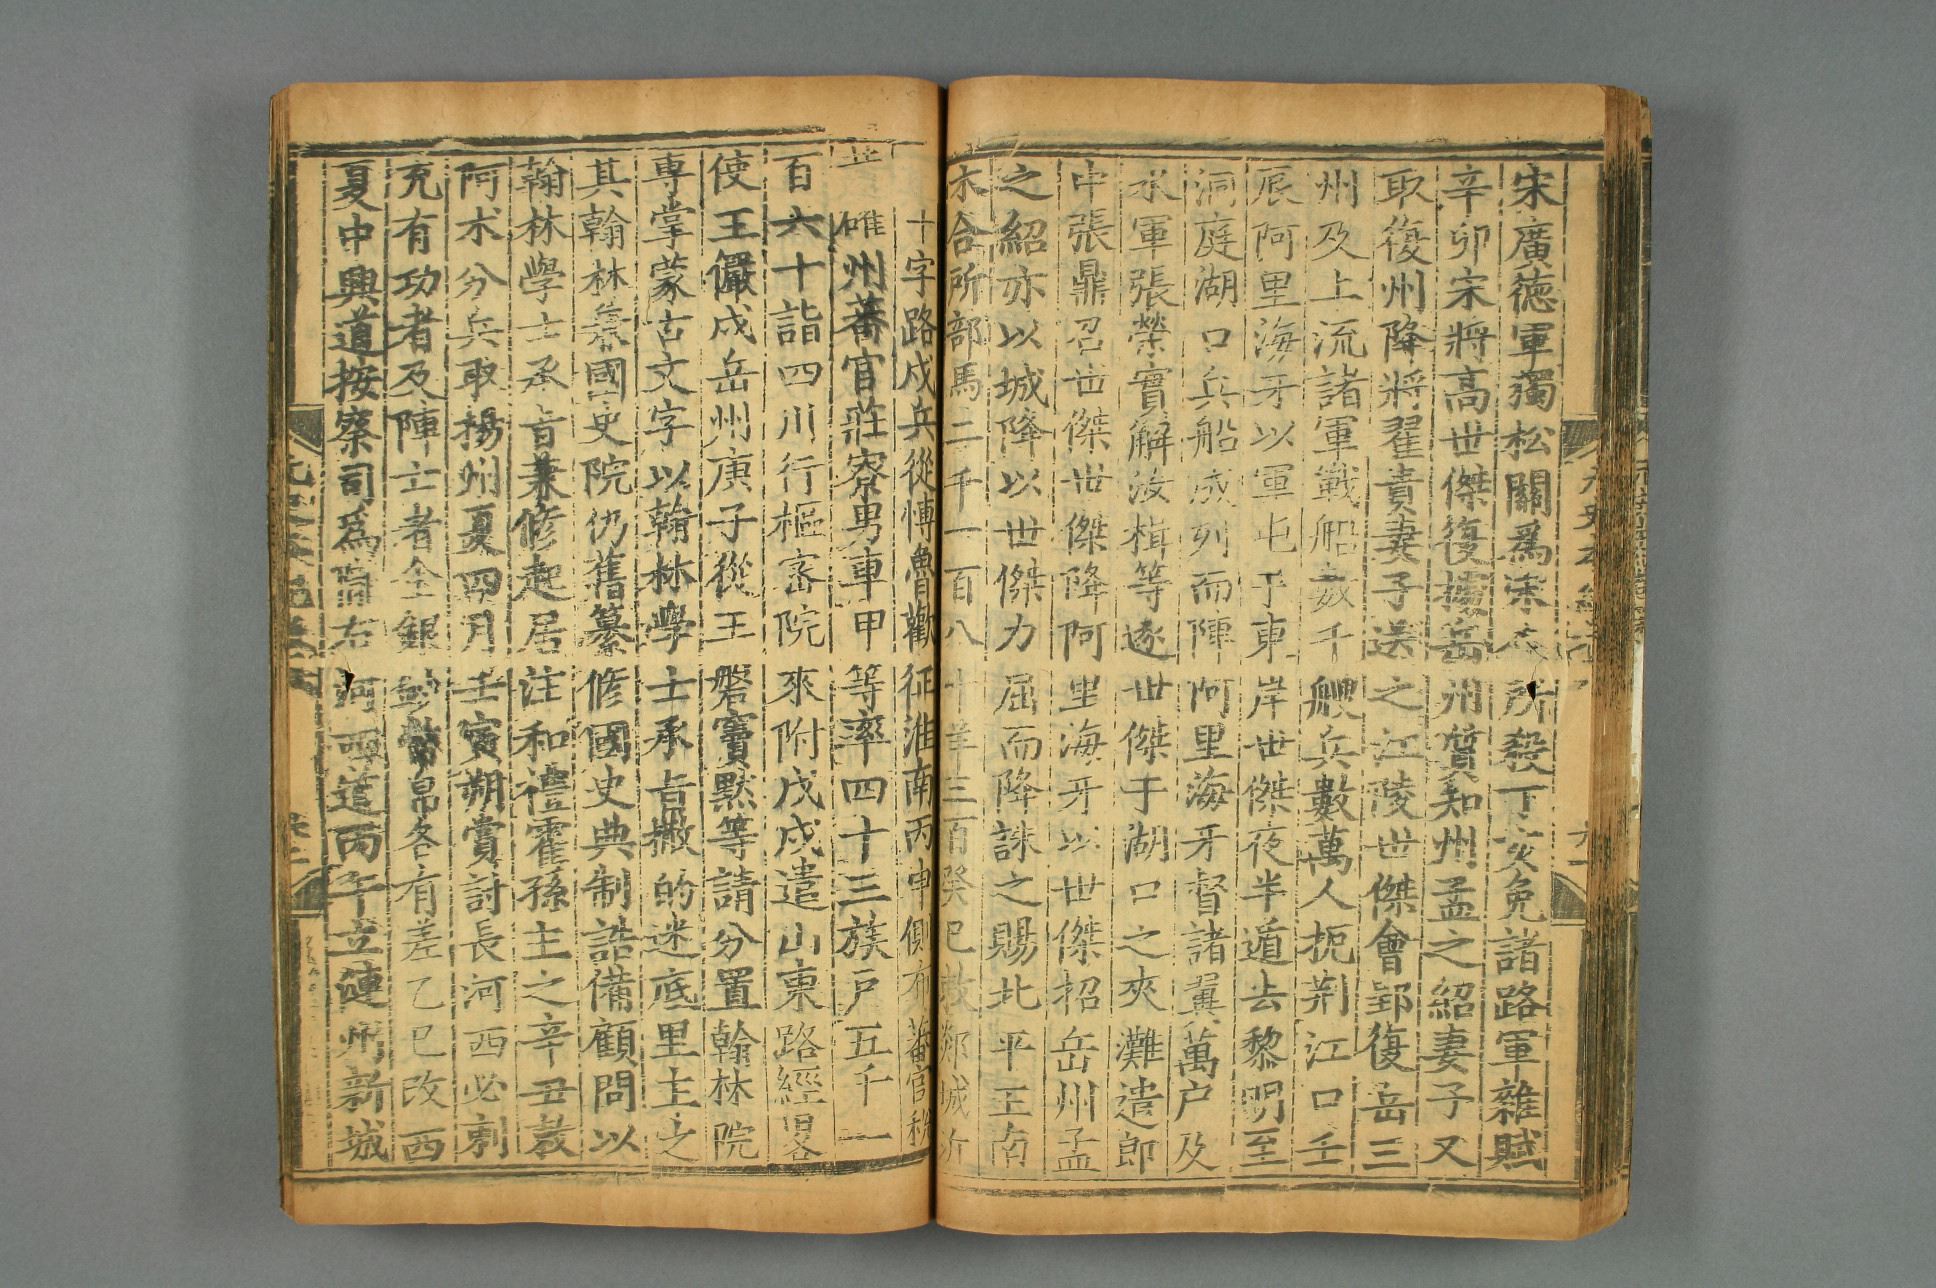 宋廣德軍獨松關爲宋 所殺丁亥免諸路軍雜賦
辛卯宋將高世傑復據岳州質知州孟之紹妻子又
取復州降將翟貴妻子送之江陵世傑會郢復岳三
州及上流諸軍戰船數千艘兵數萬人扼荆江口壬
辰阿里海牙以軍屯于東岸世傑夜半遁去黎明至
洞庭湖口兵船成列而陣阿里海牙督諸翼萬户及
水軍張榮實解汝楫等逐世傑于湖口之夾灘遣郎
中張鼎召世傑世傑降阿里海牙以世傑招岳州孟
之紹亦以城降以世傑力屈而降誅之賜北平王南
木合所部馬二千一百八十羊三百癸巳敕郯城沂
十字路戍兵從愽魯歡征淮南丙申側布蕃官税
昔 確州蕃官莊寮男車甲等率四十三族户五千一
百六十詣四川行樞密院來附戊戌遣山東路經畧
使王儼戍岳州庚子從王磐竇默等請分置翰林院
專掌蒙古文字以翰林學士承旨撒的迷底里主之
其翰林兼國史院仍舊纂修國史典制誥備顧問以
翰林學士承旨兼修起居注和禮霍孫主之辛丑敕
阿术分兵取揚州夏四月壬寅朔賞討長河西必剌
充有功者及陣亡者金銀鈔幣帛各有差乙巳改西
夏中興道按察司爲隴右河西道丙午立漣州新城
元史本紀